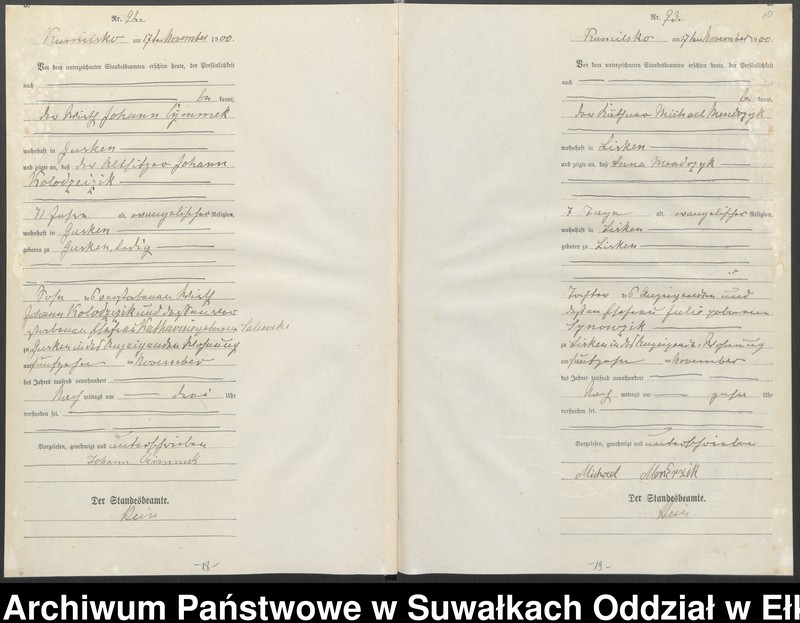 Nr. 92.
Kumilsko am 17ten November 1900.
Vor dem unterzeichneten Standesbeamten erschien heute, der Persönlichkeit
nach
be kannt,
der Wirth Johann Czymmek
wohnhaft in Gursken
und zeigte an, daß der Altsitzer Johann
Kolodzeizik
71 Jahre alt, evangelischer Religion,
wohnhaft in Gursken
geboren zu Gursken, ledig
Sohn des verstorbenen Wirth
Johann Kolodzeizik und dessen ver
storbenen Ehefrau Katharine geborenen
zu Gursken in des Anzeigenden Wohnung
am fünfzehn ten November
des Jahres tausend neunhundert
Nach mittags um drei Uhr
verstorben sei.
Vorgelesen, genehmigt und unterschrieben
Johann
Der Standesbeamte.
-18-
Nr. 93.
10
Kumilsko am 17ten November 1900.
Vor dem unterzeichneten Standesbeamten erschien heute, der Persönlichkeit
nach
be kannt,
der Käthner Michael Mondrzyk
wohnhaft in Lisken
und zeigte an, daß Anna Mondrzyk
7 Tage alt, evangelischer Religion,
wohnhaft in Lisken
geboren zu Lisken
Tochter des Anzeigenden und
dessen Ehefrau Julie geborenen
Synowzik
zu Lisken in des Anzeigenden Wohnung
am fünfzehn ten November
des Jahres tausend neunhundert
Nach mittags um zehn Uhr
verstorben sei.
Vorgelesen, genehmigt und unterschrieben
Michael
Der Standesbeamte.
-19-
Archiwum Państwowe w Suwałkach Oddział w Ełk